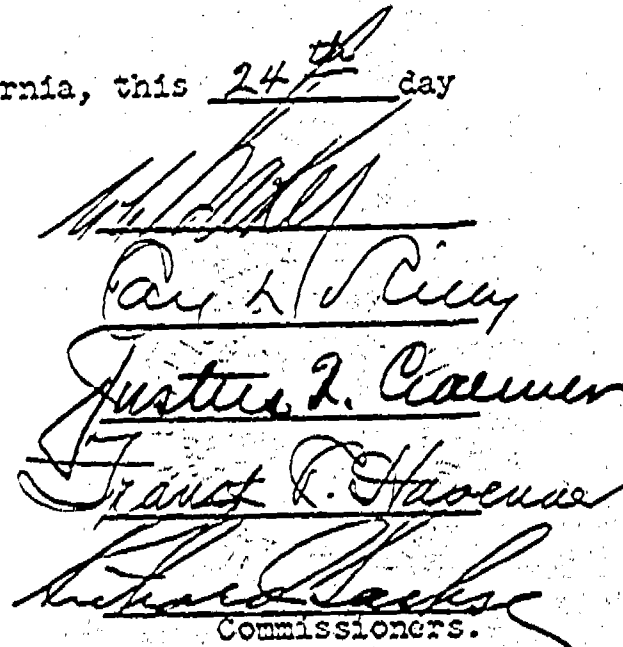 rnia, this 24th day
Justus F. Craemer
Franck R. Havenner
Richard Sachse
Commissioners.